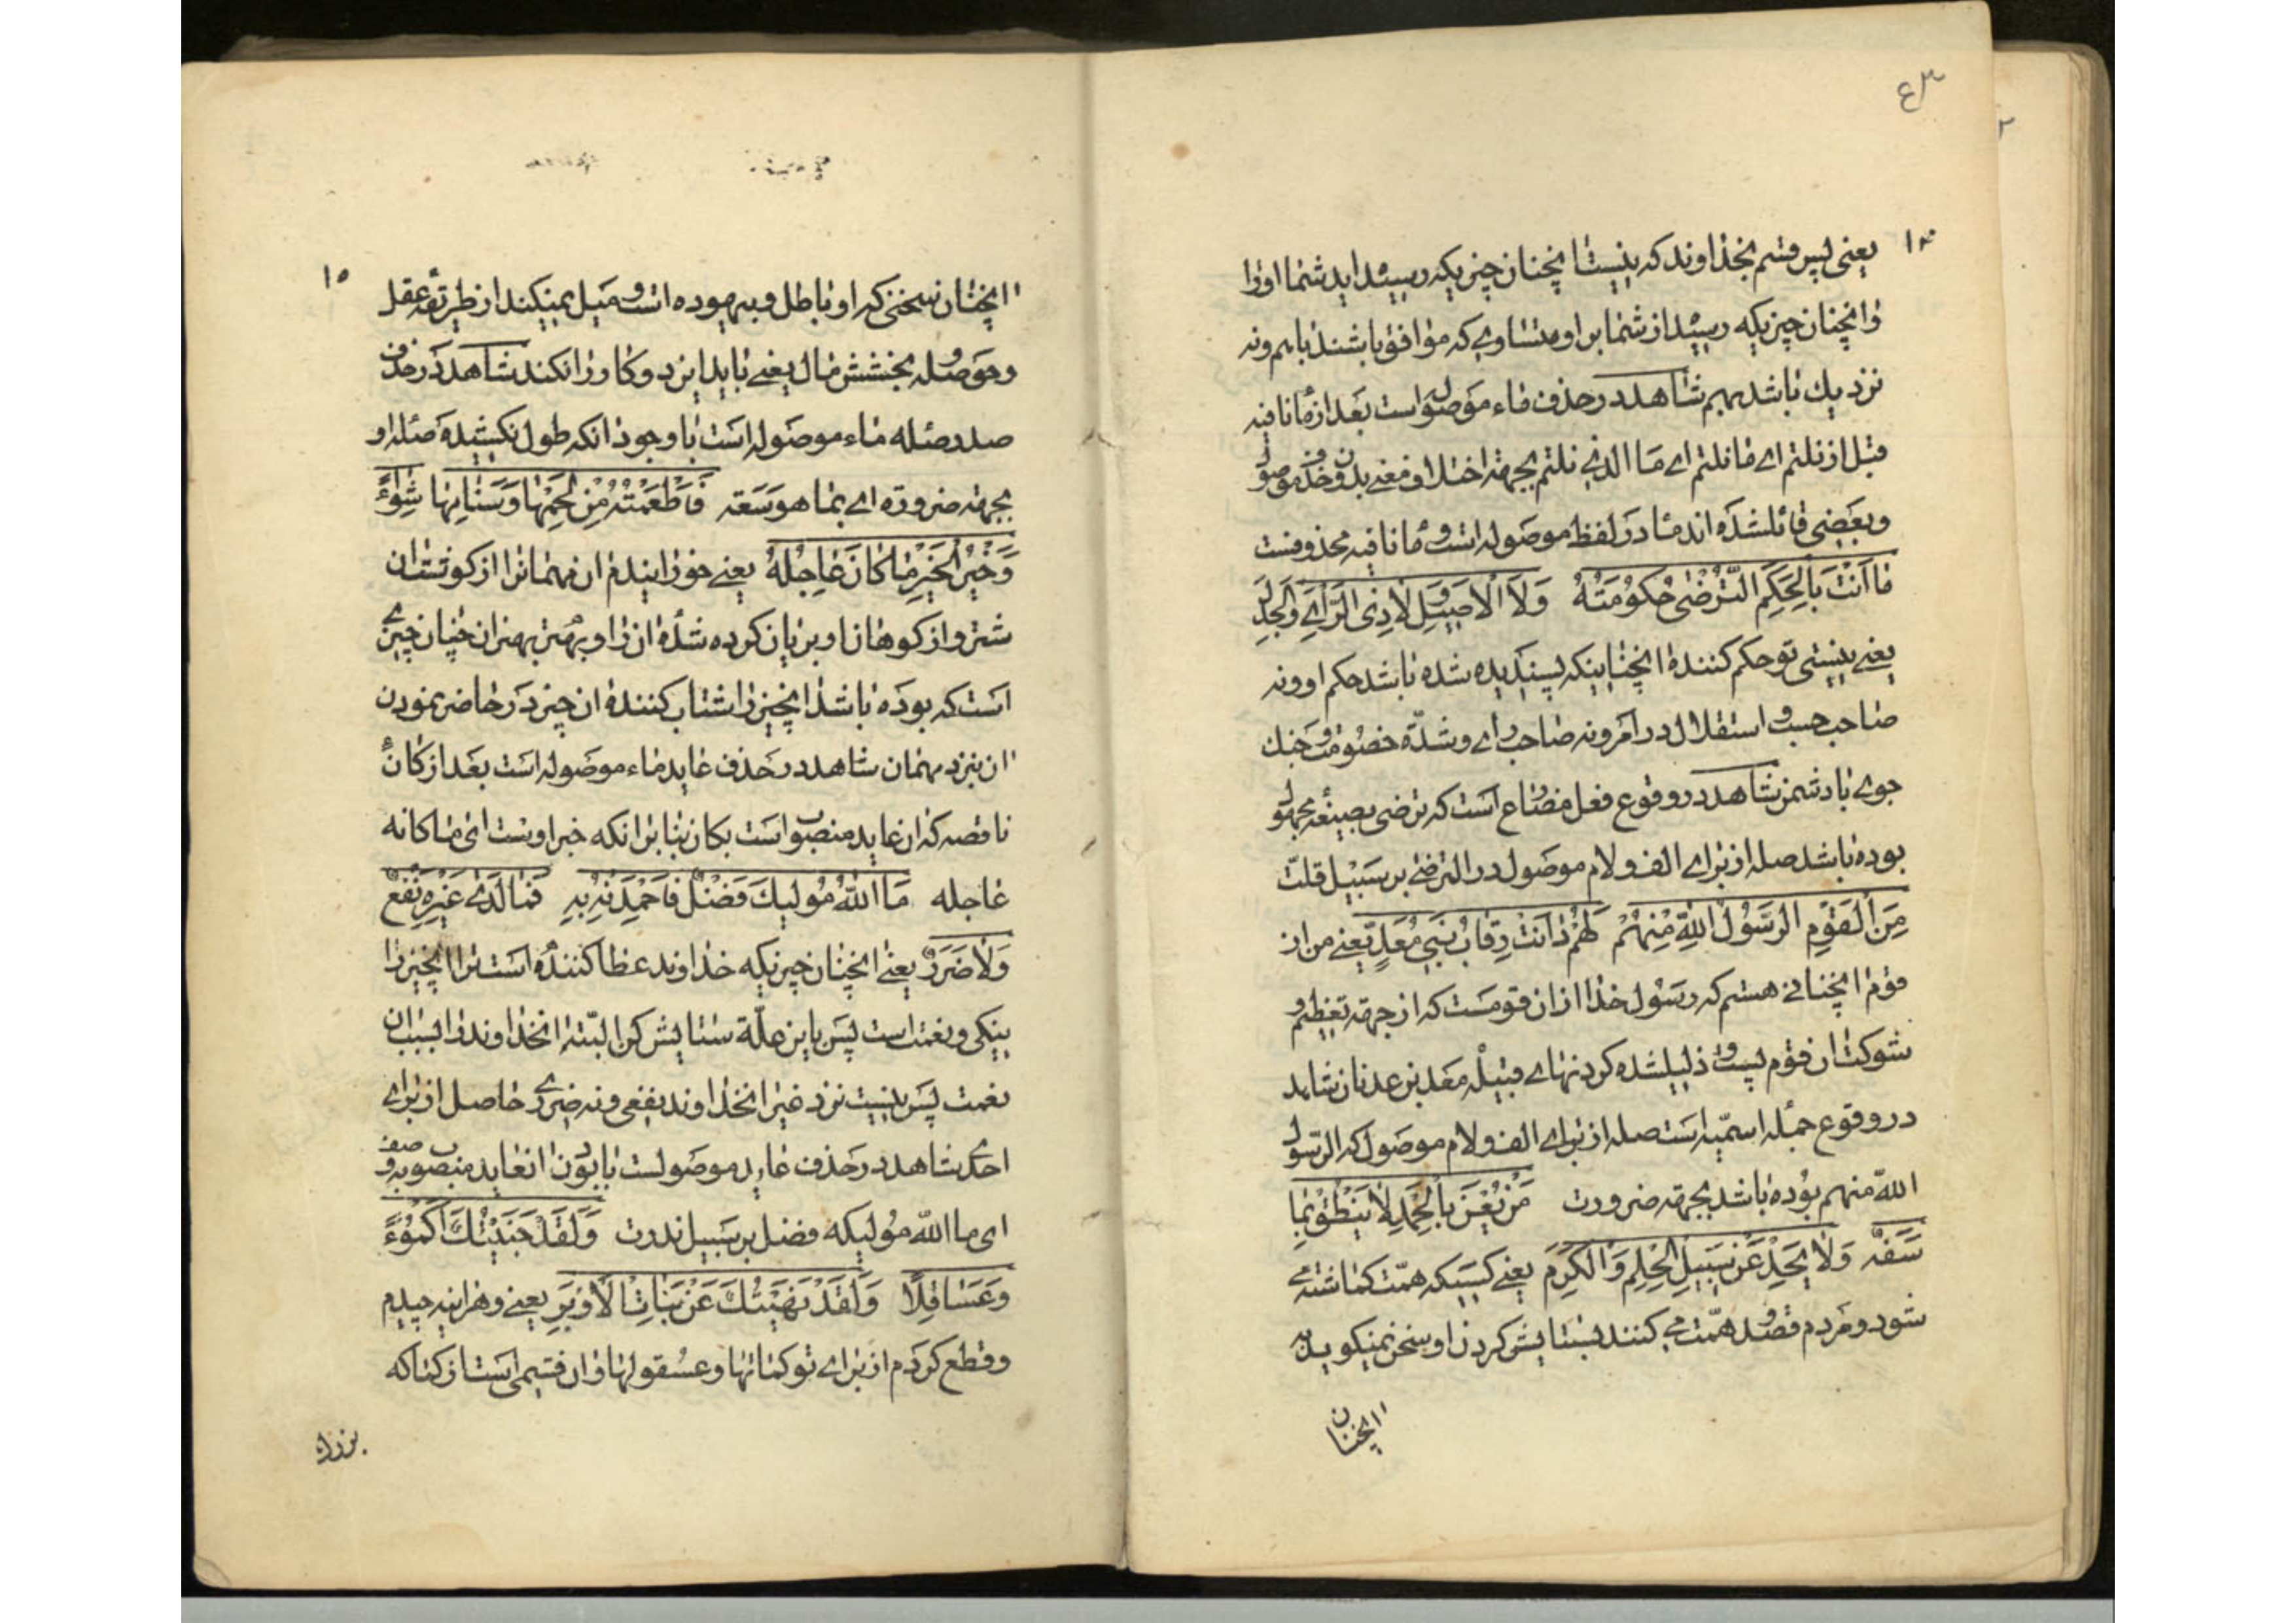 ۴۳
۱۴
یعنی پس قسم بخداوند که نیست انچنان چیزیکه رسیده اید شما اورا
وانچنان چیزیکه رسید از شما برابر و متساوی که موافق باشند باهم ونه
نزدیک باشد بهم شاهد در حذف ماء موصوله است بعد از ما نافیه
قبل از نلتم ای ما نلتم ای ما الذی نلتم بجهة اختلاف معنی بدون حذف موصول
وبعضی قائلشده اند ما در لفظ موصوله است و ما نافیه محذوفست
مَا اَنْتَ بِالْحَکَمِ التُّرْضٰی حُکُومَتُهُ وَلَا الْاَصِیلِ وَلَا ذِی الرَّاْیِ وَالْجَدَلِ
یعنی نیستی تو حکم کنندهٔ انچنانیکه پسندیده شده باشد حکم او ونه
صاحب حسب و استقلال در امر ونه صاحب رای وشدّة خصومت و جنک
جوی با دشمن شاهد در وقوع فعل مضارع است که ترضی بصیغهٔ مجهول
بوده باشد صله از برای الف ولام موصول در الترضی بر سبیل قلت
مِنَ الْقَوْمِ الرَّسُولُ اللّٰهِ مِنْهُمْ لَهُمْ دَانَتْ رِقَابُ بَنِی مَعَدٍّ یعنی من از
قوم انچنانی هستم که رسول خدا از ان قومست که از جهة تعظیم و
شوکت ان قوم پست و ذلیلشده کردنهای قبیلهٔ معد بن عدنان شاهد
در وقوع جملهٔ اسمیّه است صله از برای الف ولام موصول که الرسول
اللّه منهم بوده باشد بجهة ضرورت مَنْ یُعْنَ بِالْحَمْدِ لَا یَنْطِقْ بِمَا
سَفَهٌ وَلَا یَحِدْ عَنْ سَبِیلِ الْحِلْمِ وَالْکَرَمِ یعنی کسیکه همّت کماشته می
شود ومردم قصد و همّت می کنند بستایش کردن او سخن نمیکوید به
انچنان
۱۵
انچنان سخنی که او باطل وبیهوده است و میل نمیکند از طریقهٔ عقل
وحوصله و بخشش مال یعنی باید این دو کار را نکند شاهد در حذف
صدر صله ماء موصوله است با وجود انکه طول نکشیده صله او
بجهة ضرورة ای بما هو سفه فَاَطْعَمَتْهُ مِنْ لَحْمِهَا وَسَنَامِهَا شِوَاءً
وَخَیْرُ الْخَیْرِ مَا کَانَ عَاجِلُهُ یعنی خورانیدم ان مهمانرا از کوشت ان
شتر واز کوهان او بریان کرده شدهٔ ان را وبهترین بهتران چنان چیزی
است که بوده باشد انچیز را شتاب کنندهٔ ان چیز در حاضر نمودن
ان بنزد مهمان شاهد در حذف عاید ماء موصوله است بعد از کان
ناقصه که ان عاید منصوب است بکان بنابر انکه خبر اوست ای ما کانه
عاجله مَا اللّٰهُ مُولِیکَ فَضْلٌ فَاحْمَدَنْهُ بِهِ فَمَا لَدٰی غَیْرِهِ نَفْعٌ
وَلَا ضَرَرٌ یعنی انچنان چیزیکه خداوند عطا کنندهٔ است ترا انچیز را
نیکی ونعمت است پس باین علّة ستایش کن البتّه انخداوند را بسبب ان
نعمت پس نیست نزد غیر انخداوند نفعی ونه ضرری حاصل از برای
احدی شاهد در حذف عاید موصولست با بودن انعاید منصوب بوصف
ای ما اللّه مولیکه فضل بر سبیل ندرت وَلَقَدْ جَنَیْتُکَ اَکْمُؤًا
وَعَسَاقِلًا وَلَقَدْ نَهَیْتُکَ عَنْ بَنَاتِ الْاَوْبَرِ یعنی وهر اینه چیدم
وقطع کردم از برای تو کماتها وعسقولها وان قسمی است از کماکه